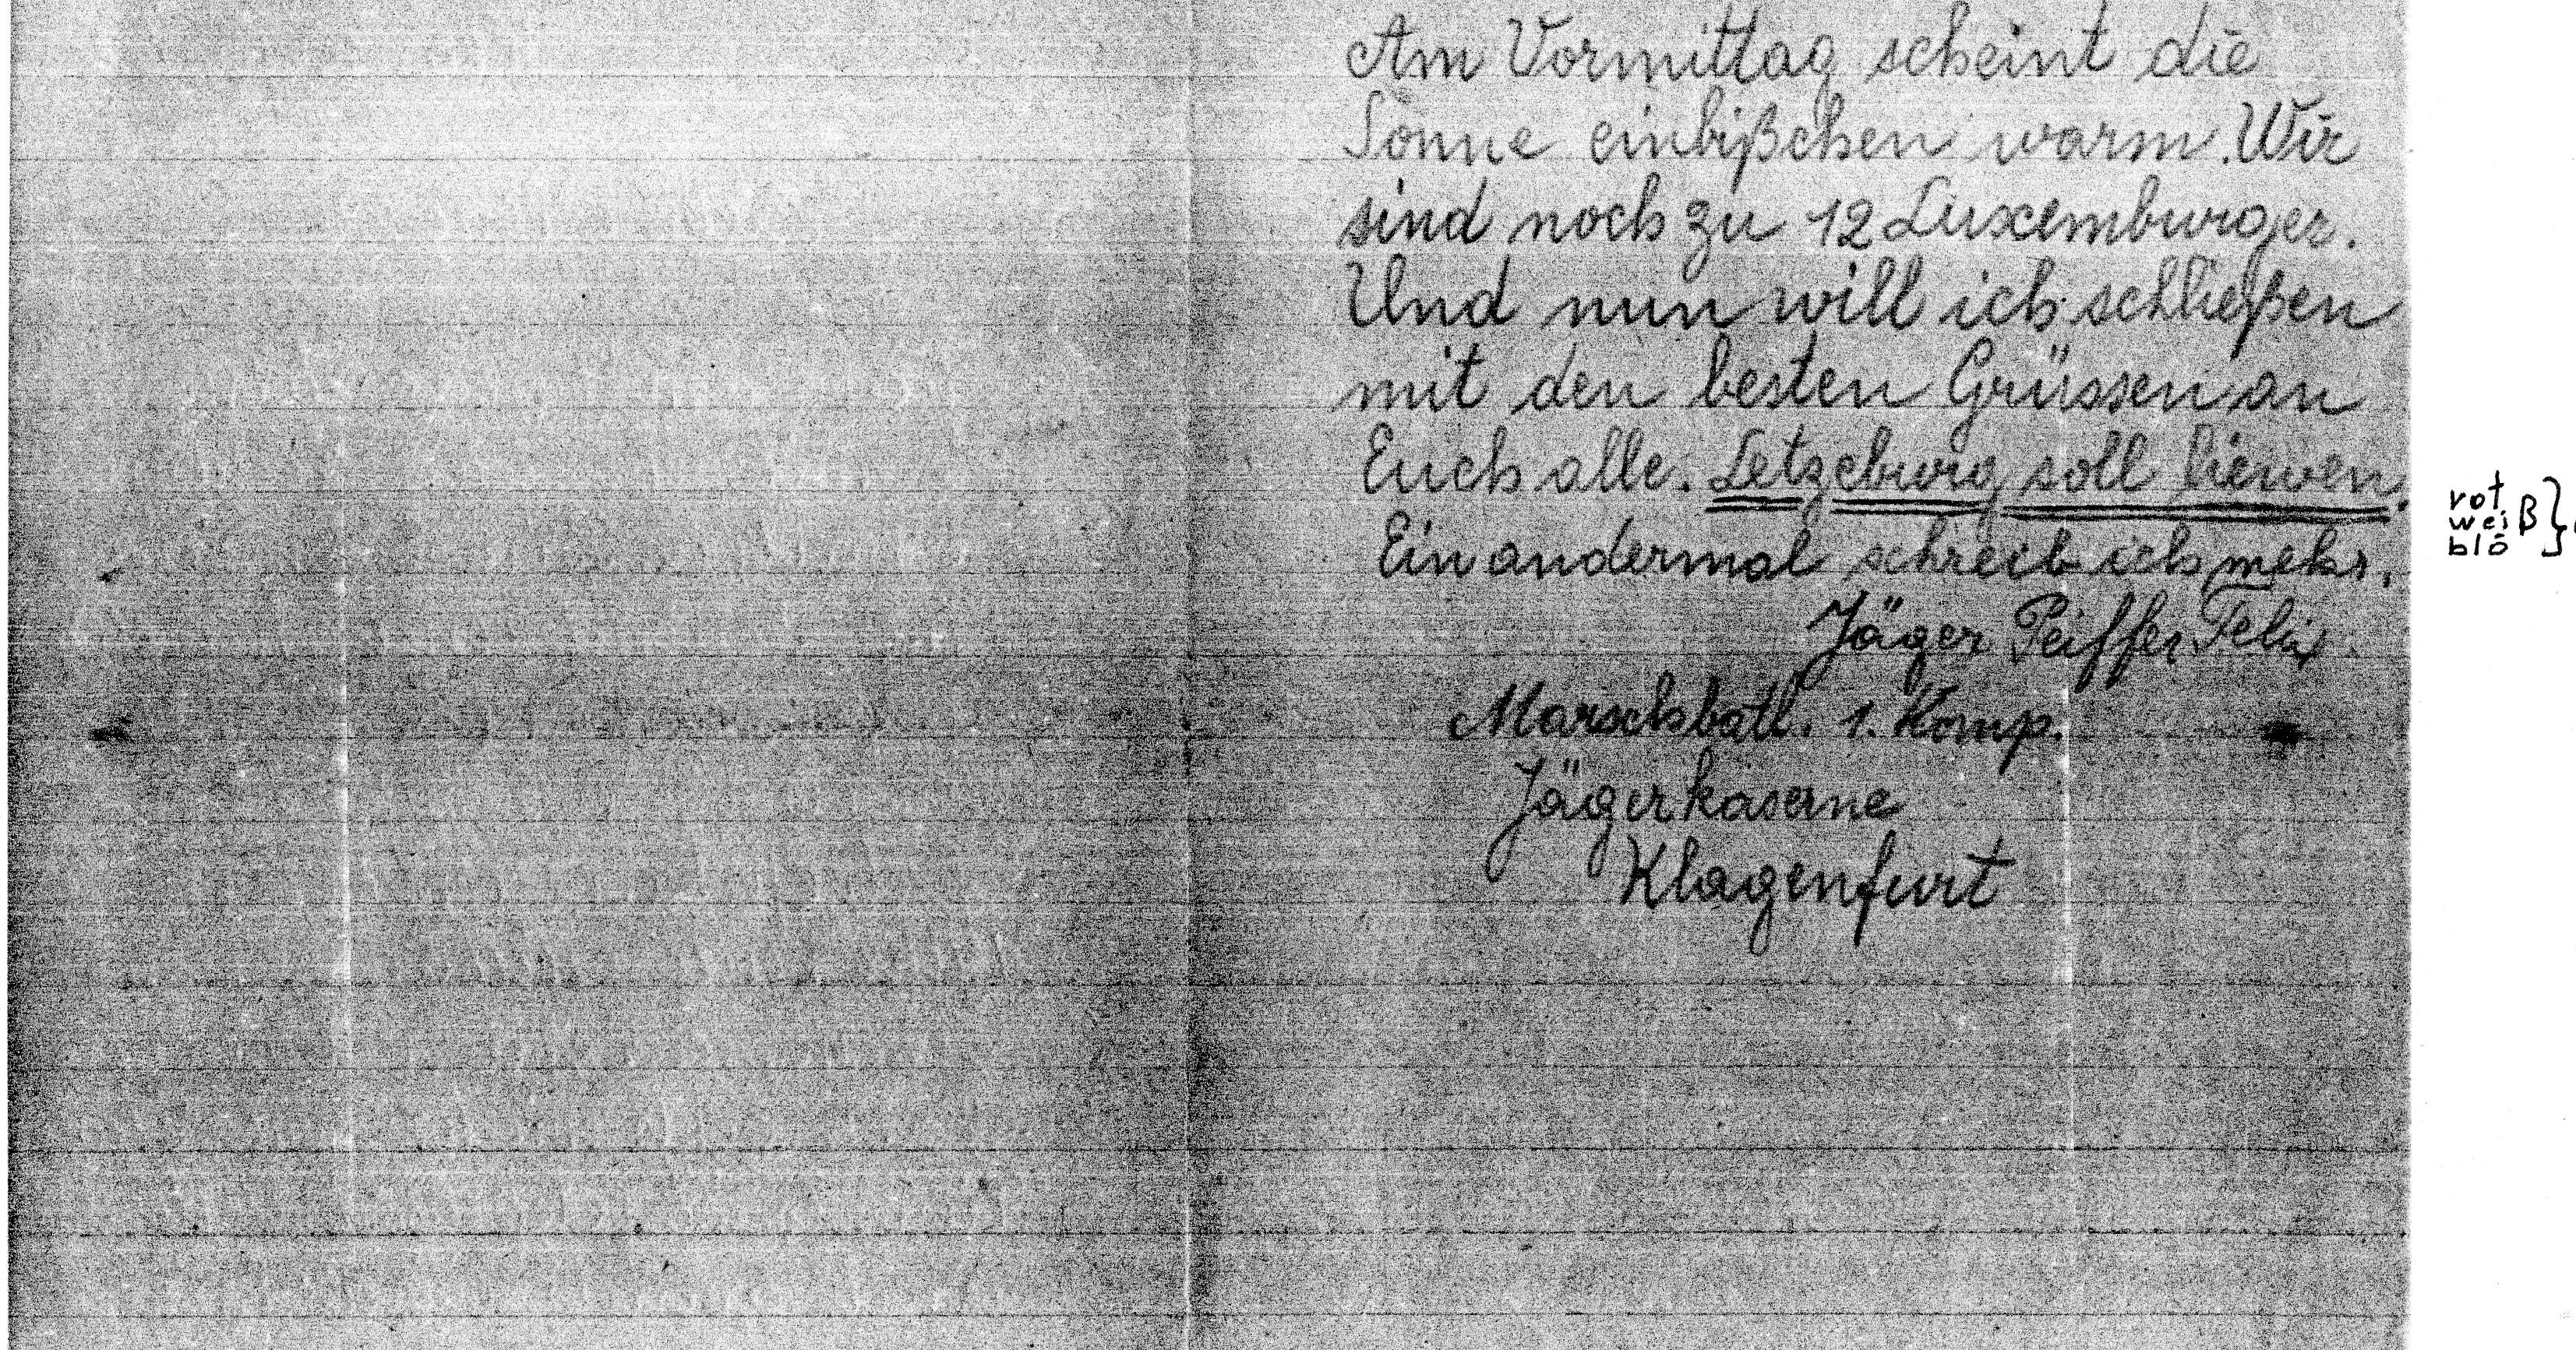 Am Vormittag scheint die
Sonne einbißchen warm. Wir
sind noch zu 12 Luxemburger.
Und nun will ich schließen
mit den besten Grüssen an
Euch alle. Letzeburg soll liewen.
Ein andermal schreib ich mehr.
Jäger Peiffer Felix
Marschbatl. 1. Komp.
Jägerkaserne
Klagenfurt
rot
weiß
blo